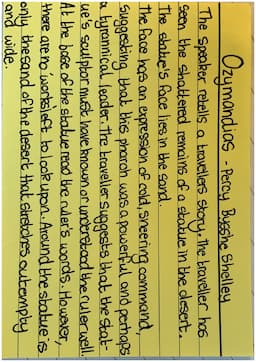 Ozymandias - Percy Bysshe Shelley
The speaker retells a travellers story. The traveller has
seen the shattered remains of a statue in the desert.
The statue's face lies in the sand.
The face has an expression of cold, sneering command,
suggesting that this pharaoh was a powerful and perhaps
a tyrannical leader. The traveller suggests that the stat-
ue's sculptor must have known or understood the ruler well.
At the base of the statue read the ruler's words. However,
there are no 'works' left to look upon. Around the statue is
only the sand of the desert that stretches out empty
and wide.